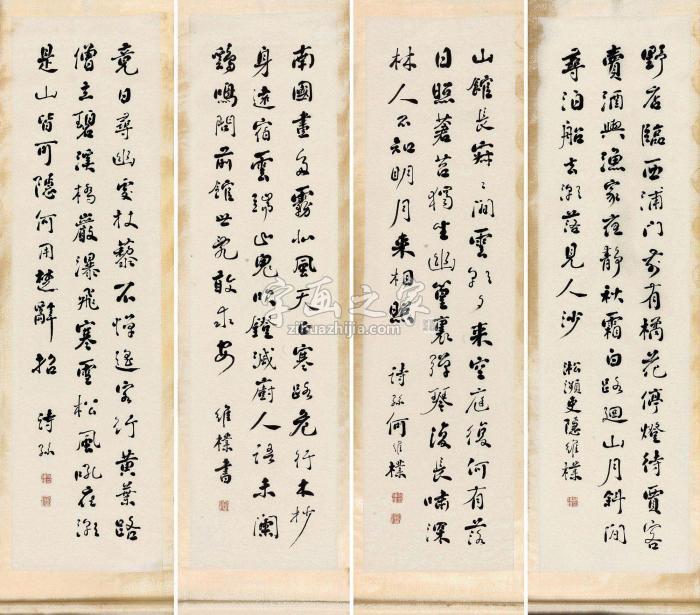 野店臨西浦門前有橘花停燈待賈客
賣酒與漁家夜靜秋霜白路迴山月斜閒
尋泊船處潮落見平沙
淞瀕吏隱維樸
山館長寂〻閒雲朝夕來空庭復何有落
日照蒼苔獨坐幽篁裏彈琴復長嘯深
林人不知明月來相照
詩孫何維樸
南國晝多霧北風天正寒路危行木杪
身遠宿雲端山鬼吹鐙滅廚人語未闌
鷄鳴問前館世亂敢求安
維樸書
竟日尋幽處杖藜不憚遙客行黃葉路
僧立碧溪橋巖瀑飛寒雪松風吼夜潮
是山皆可隱何用楚辭招
詩孫
字画之家
zihuazhijia.com